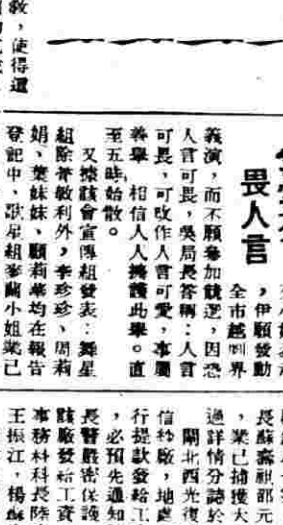 救，使得還
畏人言
，伊願發動
全市越劇界
義演，而不願參加競選，因恐
人言可畏，吳局長答稱：人言
可畏，可改作人言可愛，事屬
義舉，相信人人擁護此舉。直
至五時始散。
又據該會宣傳組發表：舞星
組除管敏利外，李珍珍、周莉
娟、葉妹妹、顧莉華均在報告
登記中，歌星組麥蘭小姐業已
長蘇麟祥部元
，業已捕獲大
過詳情分誌於
閘北西光復
信紗廠，地處
行提款發給工
，必預先通知
長警嚴密保護
該廠發給工資
事務林科長陸
王振江，楊